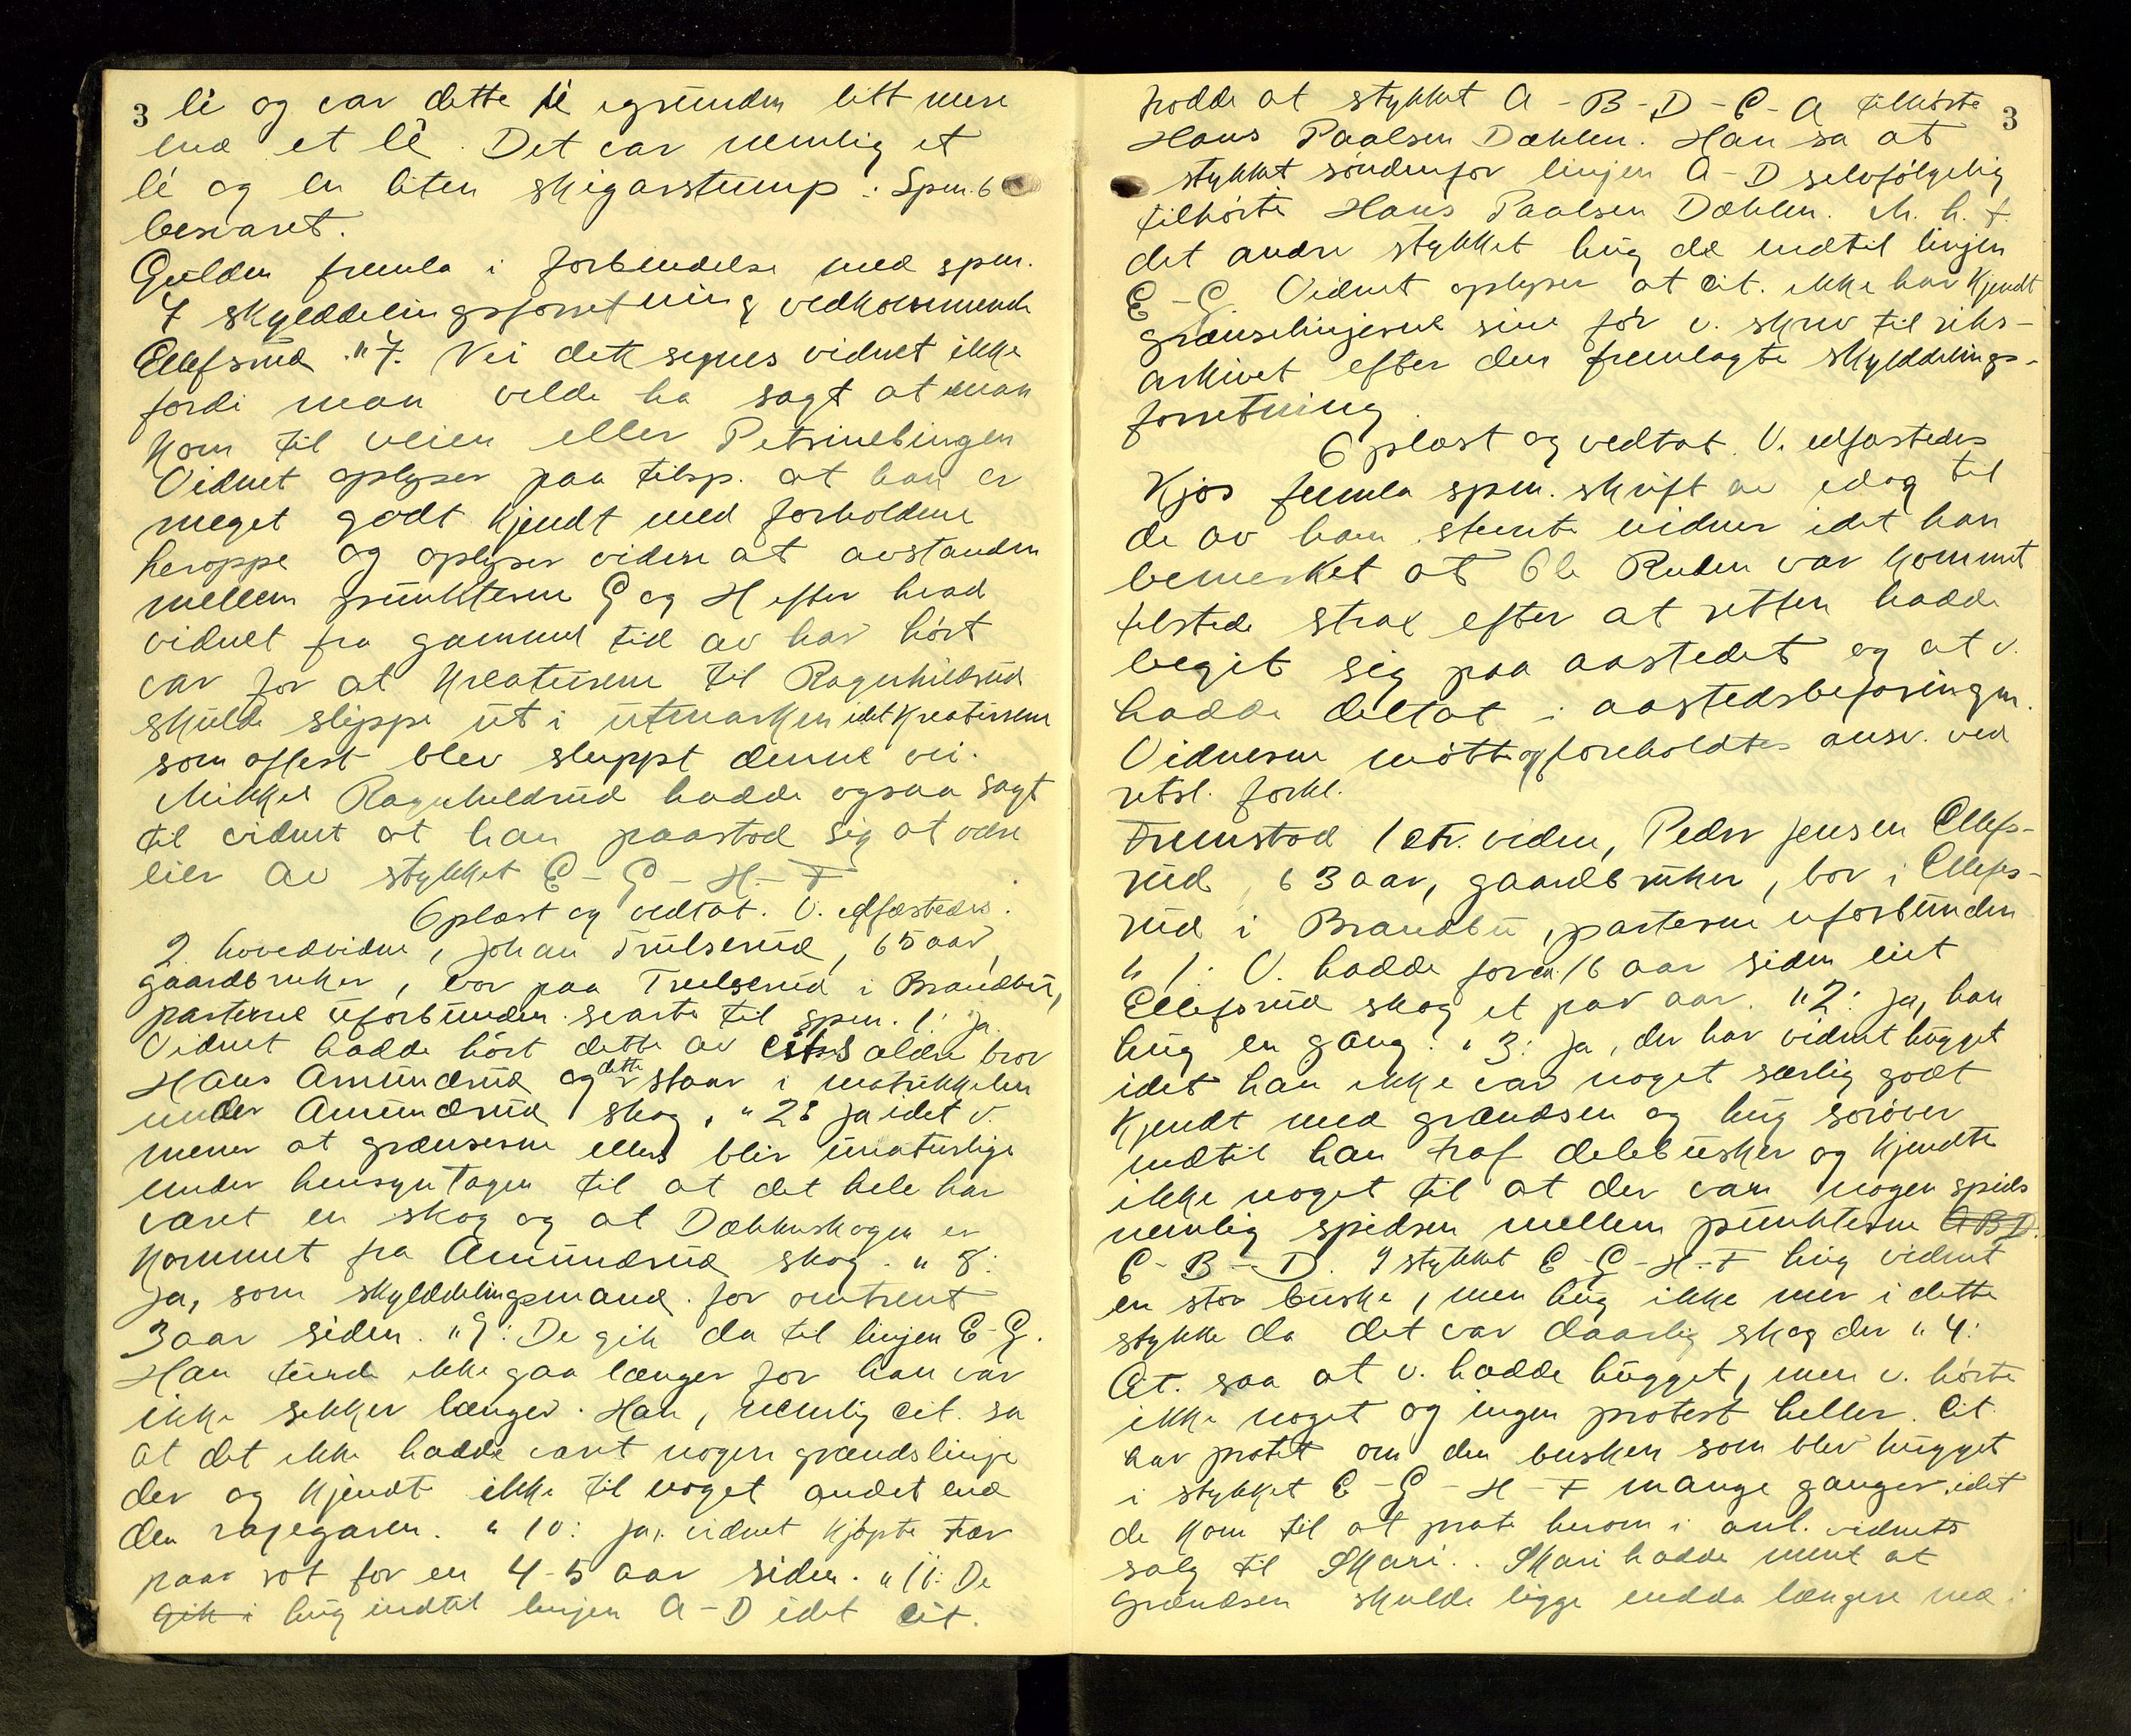 3 lé og var dette lé igrunden litt mere
end et lé. Det var nemlig et
lé og en liten skigarstump : Spm. 6
besvaret.
Gulden fremla i forbindelse med spm.
7 skylddelingsforretning vedkommende
Ellefsrud. "7. Nei dette synes vidnet ikke
fordi man vilde ha sagt at man
kom til veien eller Petrinebingen
Vidnet oplyser paa tilsp. at han er
meget godt kjendt med forholdene
heroppe og oplyser videre at avstanden
mellem punkterne G og H efter hvad
vidnet fra gammel tid av har hört
var for at kreaturene til Ragnhildrud
skulde slippe ut i utmarken idet kreaturene
som oftest blev sluppt denne vei.
Mikkel Ragnhildrud hadde ogsaa sagt
til vidnet at han paastod sig at være
eier av stykket E - G - H - F
Oplæst og vedtat. V. edfæstedes.
2. hovedvidne, Johan Trulserud, 65 aar,
gaardbruker, bor paa Trulserud i Brandbu,
parterne uforbunden svarte til spm. 1: Ja.
Vidnet hadde hört dette av cits ældre bror
Hans Amundrud og dette staar i matrikkelen
under Amundrud skog, " 2: Ja idet v.
mener at grænserne ellers blir unaturlige
under hensyntagen til at det hele har
været en skog og at Dæhlenskogen er
kommet fra Amundrud skog. " 8:
Ja, som skylddelingsmand for omtrent
3 aar siden. " 9: De gik da til linjen E-G.
Han turde ikke gaa længer for han var
ikke sikker længer. Han, nemlig cit. sa
at det ikke hadde vært nogen grændslinje
der og kjendt ikke til noget andet end
den rajegaren. " 10: Ja, vidnet kjøpte tær
paar rot for en 4-5 aar siden. " 11: De
gik i hug indtil linjen A-D idet cit.
trodde at stykket A - B - D - C - A tilhörte 3
Hans Paalsen Dæhlen. Han sa at
stykket söndenfor linjen A - D selvfölgelig
tilhörte Hans Paalsen Dæhlen. M. h. t.
det andre stykket hug de indtil linjen
E - G. Vidnet oplyser at cit. ikke har kjendt
grænselinjerne sine för v. skrev til riks-
arkivet efter den fremlagte skylddelings-
forretning.
Oplæst og vedtat. V. edfæstedes
Kjos fremla spm. skrift av idag til
de av ham stevnte vidner idet han
bemerket at Ole Ruden var kommet
tilstede strax efter at retten hadde
begit sig paa aastedet og at v.
hadde deltat i aastedsbefaringen.
Vidnerne mötte og foreholdtes ansv. ved
retsl. forkl.
Fremstod 1 ctr. vidne, Peder Jensen Ellefs-
rud, 63 aar, gaardbruker, bor i Ellefs-
rud i Brandbu, parterne uforbunden
" 1: V. hadde for ca. 16 aar siden eiet
Ellefsrud skog et par aar. " 2: Ja, han
hug en gang. " 3: Ja, der har vidnet hugget
idet han ikke var noget særlig godt
kjendt med grændsen og hug soröver
indtil han traf delebusker og kjendte
ikke noget til at der var nogen spids
nemlig spidsen mellem punkterne A B D.
C - B - D. I stykket E - G - H - F hug vidnet
en stor buske, men hug ikke mer i dette
stykke da det var daarlig skog der " 4:
Cit. saa at v. hadde hugget, men v. hörte
ikke noget og ingen protest heller. Cit.
har pratet om den busken som blev hugget
i stykket E - G - H - F mange ganger, idet
de kom til at prate herom i anl. vidnets
salg til Skari. Skari hadde ment at
Grændsen skulde ligge endda længere ned